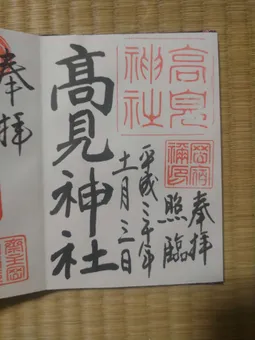 奉拝
照臨
平成三十年
十一月三日
高見
神社
高見神社
奉拝